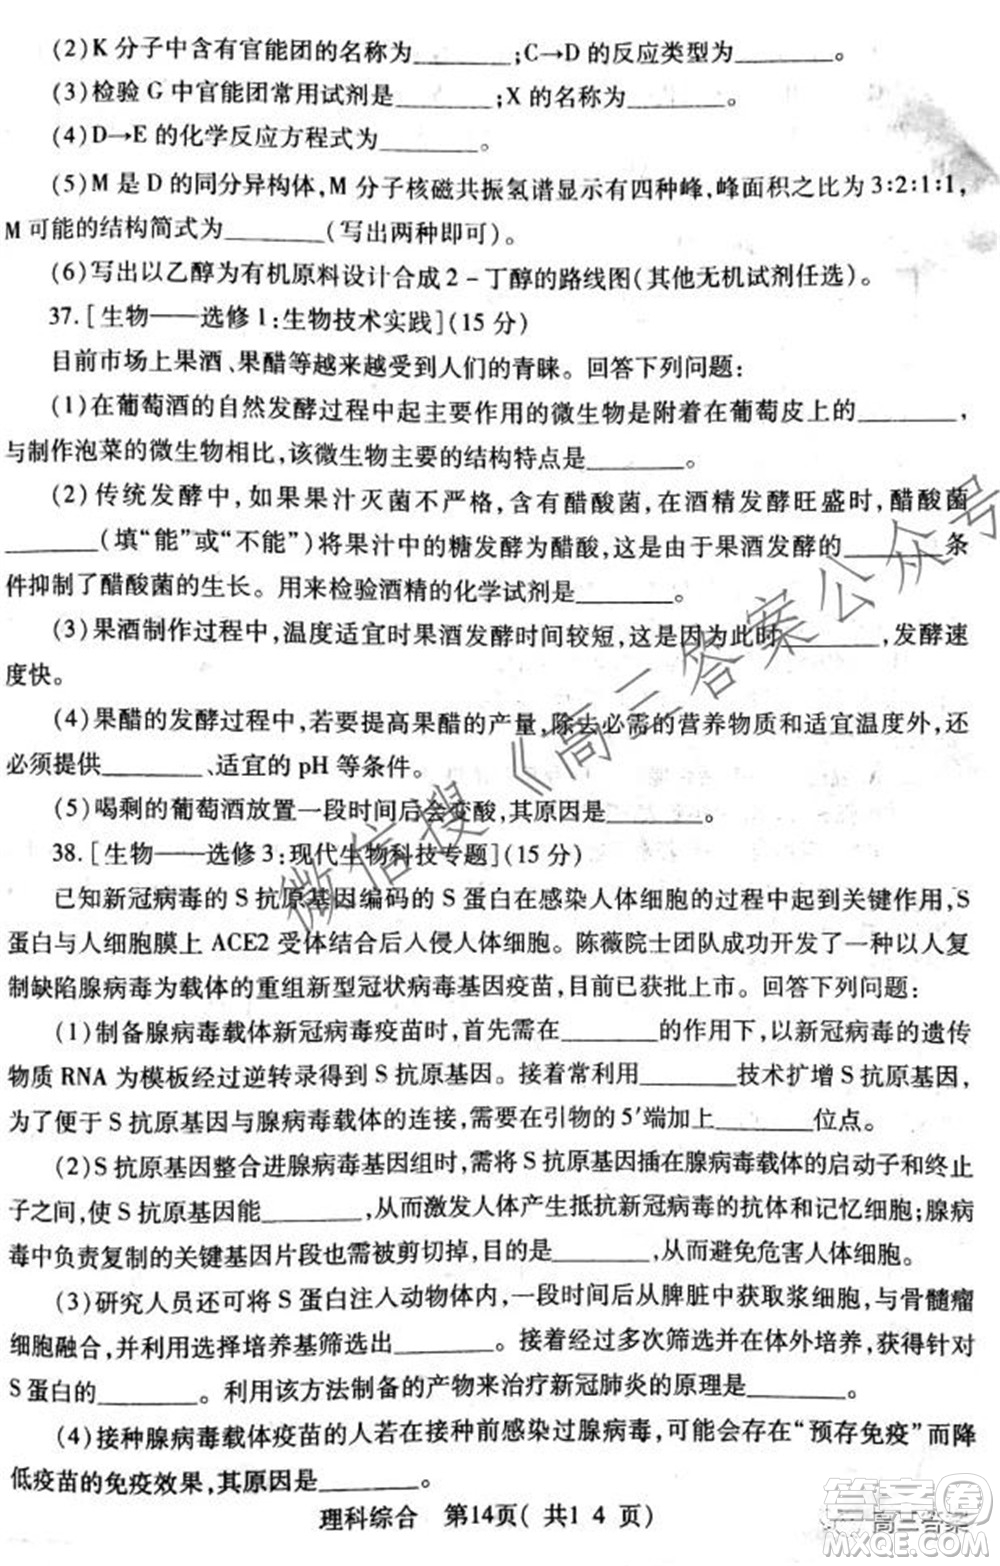 (2)K 分子中含有官能团的名称为________;C→D 的反应类型为________。
(3)检验 G 中官能团常用试剂是________;X 的名称为________。
(4)D→E 的化学反应方程式为________。
(5)M 是 D 的同分异构体,M 分子核磁共振氢谱显示有四种峰,峰面积之比为 3:2:1:1,
M 可能的结构简式为________(写出两种即可)。
(6)写出以乙醇为有机原料设计合成 2-丁醇的路线图(其他无机试剂任选)。
37.[生物——选修 1:生物技术实践](15 分)
目前市场上果酒、果醋等越来越受到人们的青睐。回答下列问题:
(1)在葡萄酒的自然发酵过程中起主要作用的微生物是附着在葡萄皮上的________,
与制作泡菜的微生物相比,该微生物主要的结构特点是________。
(2)传统发酵中,如果果汁灭菌不严格,含有醋酸菌,在酒精发酵旺盛时,醋酸菌
________(填“能”或“不能”)将果汁中的糖发酵为醋酸,这是由于果酒发酵的________条
件抑制了醋酸菌的生长。用来检验酒精的化学试剂是________。
(3)果酒制作过程中,温度适宜时果酒发酵时间较短,这是因为此时________,发酵速
度快。
(4)果醋的发酵过程中,若要提高果醋的产量,除去必需的营养物质和适宜温度外,还
必须提供________、适宜的 pH 等条件。
(5)喝剩的葡萄酒放置一段时间后会变酸,其原因是________。
38.[生物——选修 3:现代生物科技专题](15 分)
已知新冠病毒的 S 抗原基因编码的 S 蛋白在感染人体细胞的过程中起到关键作用,S
蛋白与人细胞膜上 ACE2 受体结合后入侵人体细胞。陈薇院士团队成功开发了一种以人复
制缺陷腺病毒为载体的重组新型冠状病毒基因疫苗,目前已获批上市。回答下列问题:
(1)制备腺病毒载体新冠病毒疫苗时,首先需在________的作用下,以新冠病毒的遗传
物质 RNA 为模板经过逆转录得到 S 抗原基因。接着常利用________技术扩增 S 抗原基因,
为了便于 S 抗原基因与腺病毒载体的连接,需要在引物的 5′端加上________位点。
(2)S 抗原基因整合进腺病毒基因组时,需将 S 抗原基因插在腺病毒载体的启动子和终止
子之间,使 S 抗原基因能________,从而激发人体产生抵抗新冠病毒的抗体和记忆细胞;腺病
毒中负责复制的关键基因片段也需被剪切掉,目的是________,从而避免危害人体细胞。
(3)研究人员还可将 S 蛋白注入动物体内,一段时间后从脾脏中获取浆细胞,与骨髓瘤
细胞融合,并利用选择培养基筛选出________。接着经过多次筛选并在体外培养,获得针对
S 蛋白的________。利用该方法制备的产物来治疗新冠肺炎的原理是________。
(4)接种腺病毒载体疫苗的人若在接种前感染过腺病毒,可能会存在“预存免疫”而降
低疫苗的免疫效果,其原因是________。
理科综合 第14页(共1 4 页)
微信搜《高三答案公众号
高三答案
答案圈
MXQE.COM